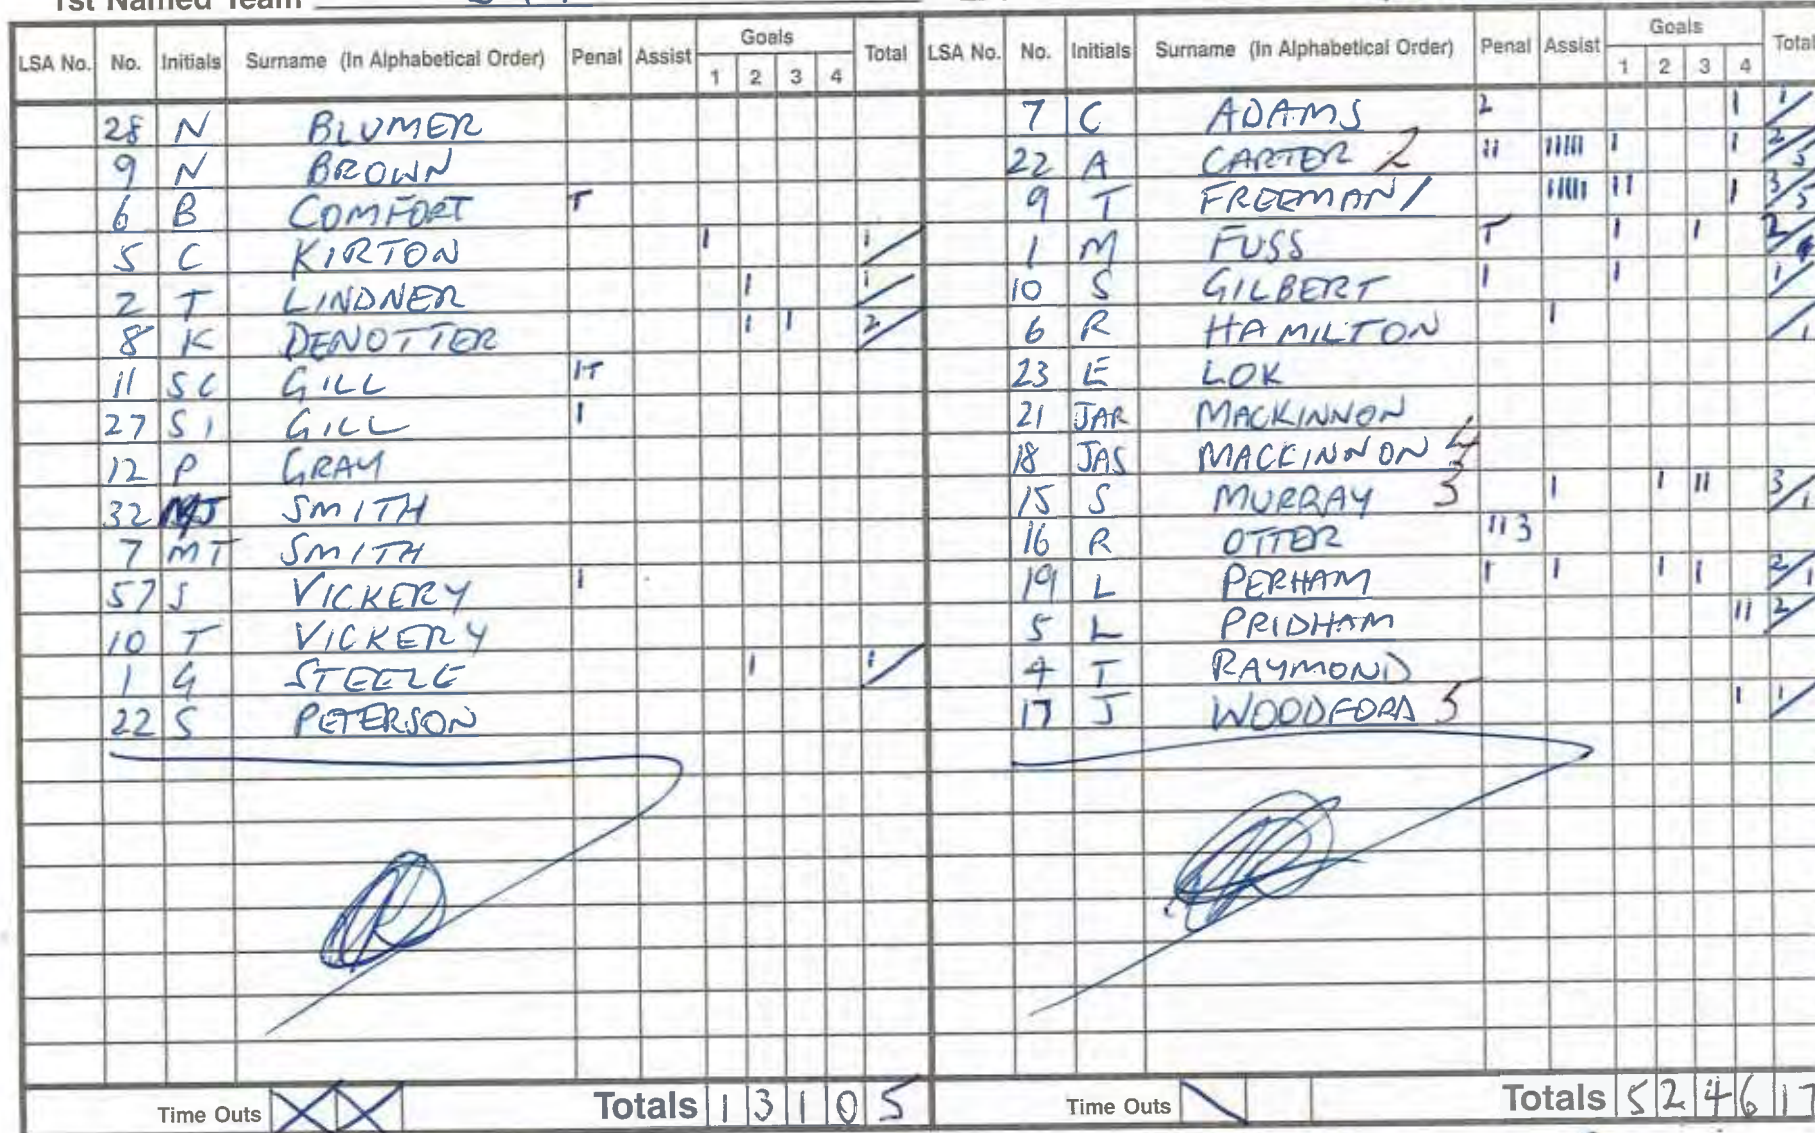 1st Named Team
LSA No. No. Initials Surname (In Alphabetical Order) Penal Assist Goals 1 2 3 4 Total
28 N BLUMER
9 N BROWN
6 B COMFORT T
5 C KIRTON 1 1/
2 T LINDNER 1 1/
8 K DENOTTER 1 1 2/
11 SC GILL 1T
27 SI GILL 1
12 P GRAY
32 MJ SMITH
7 MT SMITH
57 S VICKERY 1
10 T VICKERY
1 G STEELE 1 1/
22 S PETERSON
Time Outs X X Totals 1 3 1 0 5
LSA No. No. Initials Surname (In Alphabetical Order) Penal Assist Goals 1 2 3 4 Total
7 C ADAMS 2 1 1/
22 A CARTER 2 11 11111 1 1 2/5
9 T FREEMAN 1 11111 11 1 3/5
1 M FUSS T 1 1 2/
10 S GILBERT 1 1 1/
6 R HAMILTON 1 /1
23 E LOK
21 JAR MACKINNON
18 JAS MACKINNON 4
15 S MURRAY 3 1 1 11 3/1
16 R OTTER 11 3
19 L PERHAM 1 1 1 1 2/1
5 L PRIDHAM 11 2/
4 T RAYMOND
17 J WOODFORD 5 1 1/
Time Outs \ Totals 5 2 4 6 17